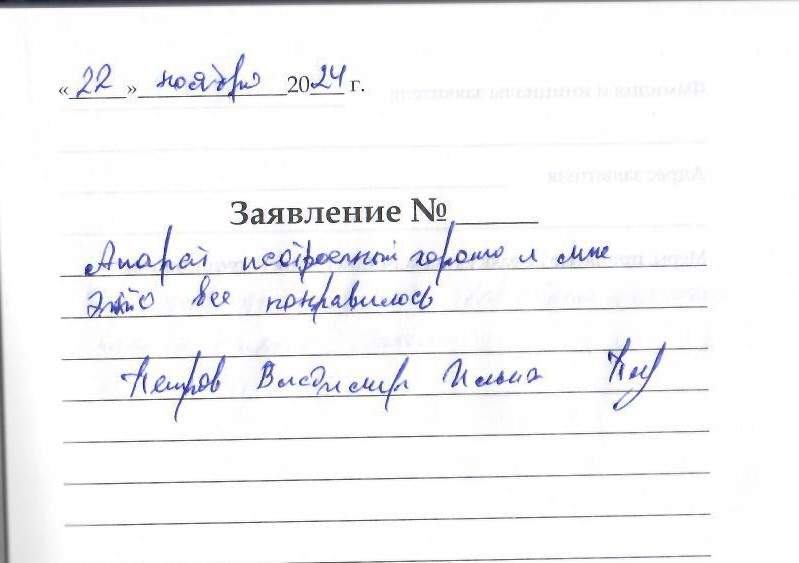 « 22 » ноября 2024 г.
Заявление №
Апарат настроенный хорошо и мне
это все понравилось
Петров Владимир Ильич